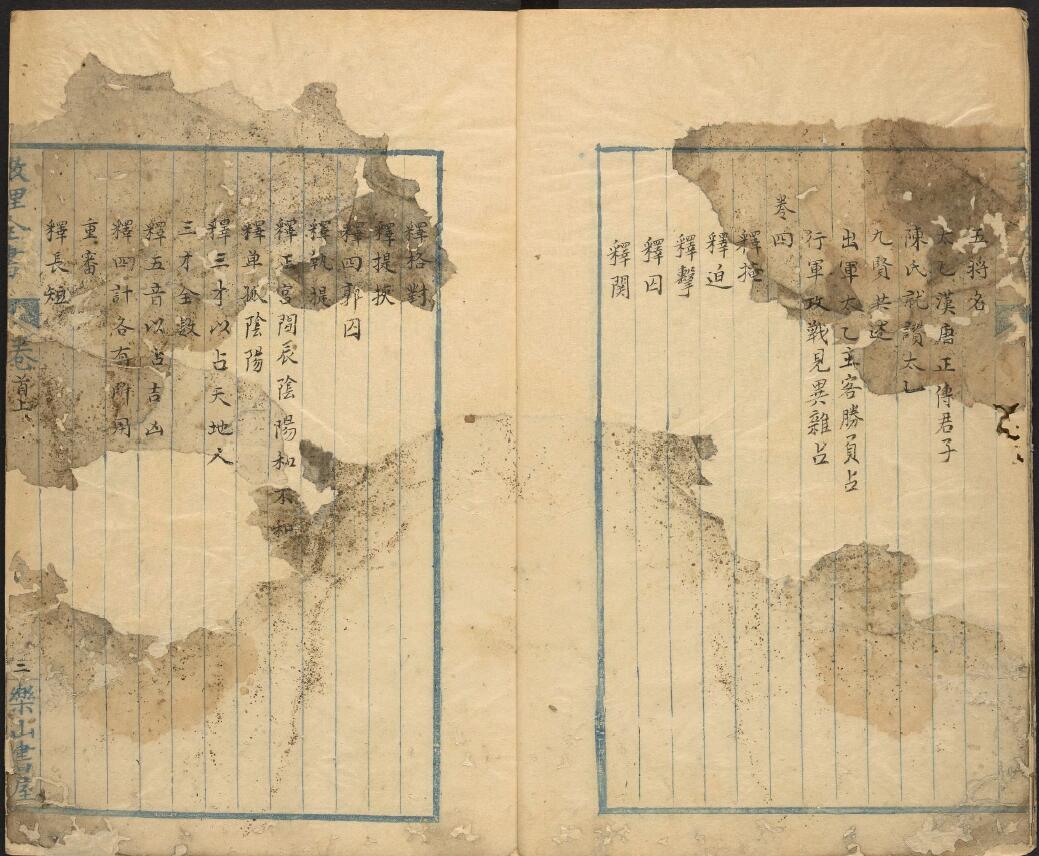 五將名
太乙漢唐正傳君子
陳氏就讚太乙
九賢共述
出軍太乙主客勝負占
行軍攻戰見異雜占
卷四
釋掩
釋迫
釋擊
釋囚
釋関
釋格對
釋提挾
釋四郭囚
釋執提
釋正宮間辰陰陽和不和
釋單孤陰陽
釋三才以占天地人
三才全数
釋五音以占吉凶
釋四計各有所用
重審
釋長短
數理全書 卷首上
二 樂山書屋